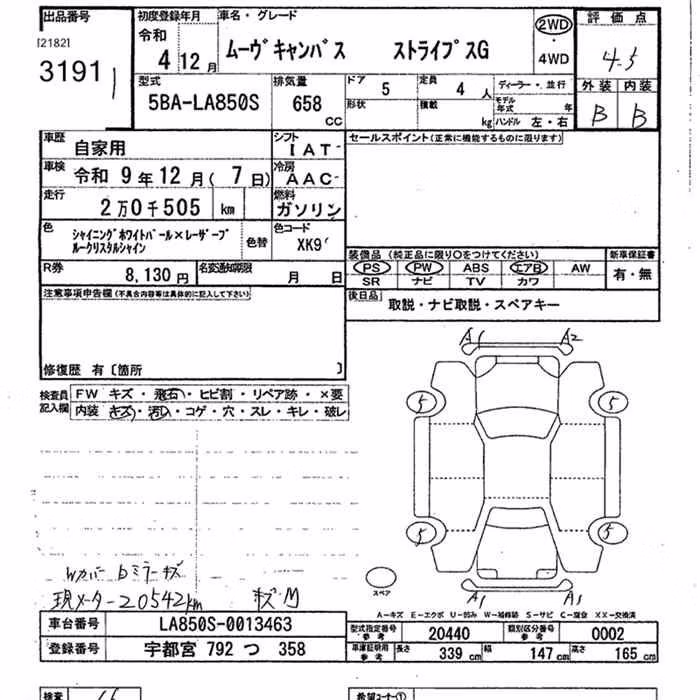 出品番号
[2182]
3191
初度登録年月
令和
4 12月
車名・グレード
ムーヴキャンバス ストライプスG
2WD
・
4WD
評価点
4.5
型式
5BA-LA850S
排気量
658
CC
ドア
5
定員
4 人
ディーラー・並行
形状
積載
kg
モデル年式 年
ハンドル 左・右
外装 内装
B B
車歴
自家用
シフト
IAT
セールスポイント(正常に機能するものに限ります)
車検
令和 9年12月(7日)
冷房
AAC
走行
2万0千505 km
燃料
ガソリン
色
シャイニングホワイトパール×レーザーブルークリスタルシャイン
色替
色コード
XK9
R券
8,130円
名変通知期限
月 日
装備品(純正品に限り○をつけてください)
PS PW ABS エアB AW
SR ナビ TV カワ
新車保証書
有・無
後日品
取説・ナビ取説・スペアキー
注意事項申告欄(不具合内容等は具体的に記入して下さい)
修復歴 有〔箇所 〕
検査員
記入欄
FW キズ・飛石・ヒビ割・リペア跡・×要
内装 キズ・汚れ・コゲ・穴・スレ・キレ・破レ
A1 A2
5 5
5 5
スペア
A1 A1
Wカバー bミラーキズ
現メーター20542km キズM
A-キズ E-エクボ U-凹み W-補修跡 S-サビ C-腐食 XX-交換済
車台番号
LA850S-0013463
登録番号
宇都宮 792 つ 358
型式指定番号
参考
20440
類別区分番号
参考
0002
車庫証明用
参考
長さ 339 cm
幅 147 cm
高さ 165 cm
検査
希望コーナー①